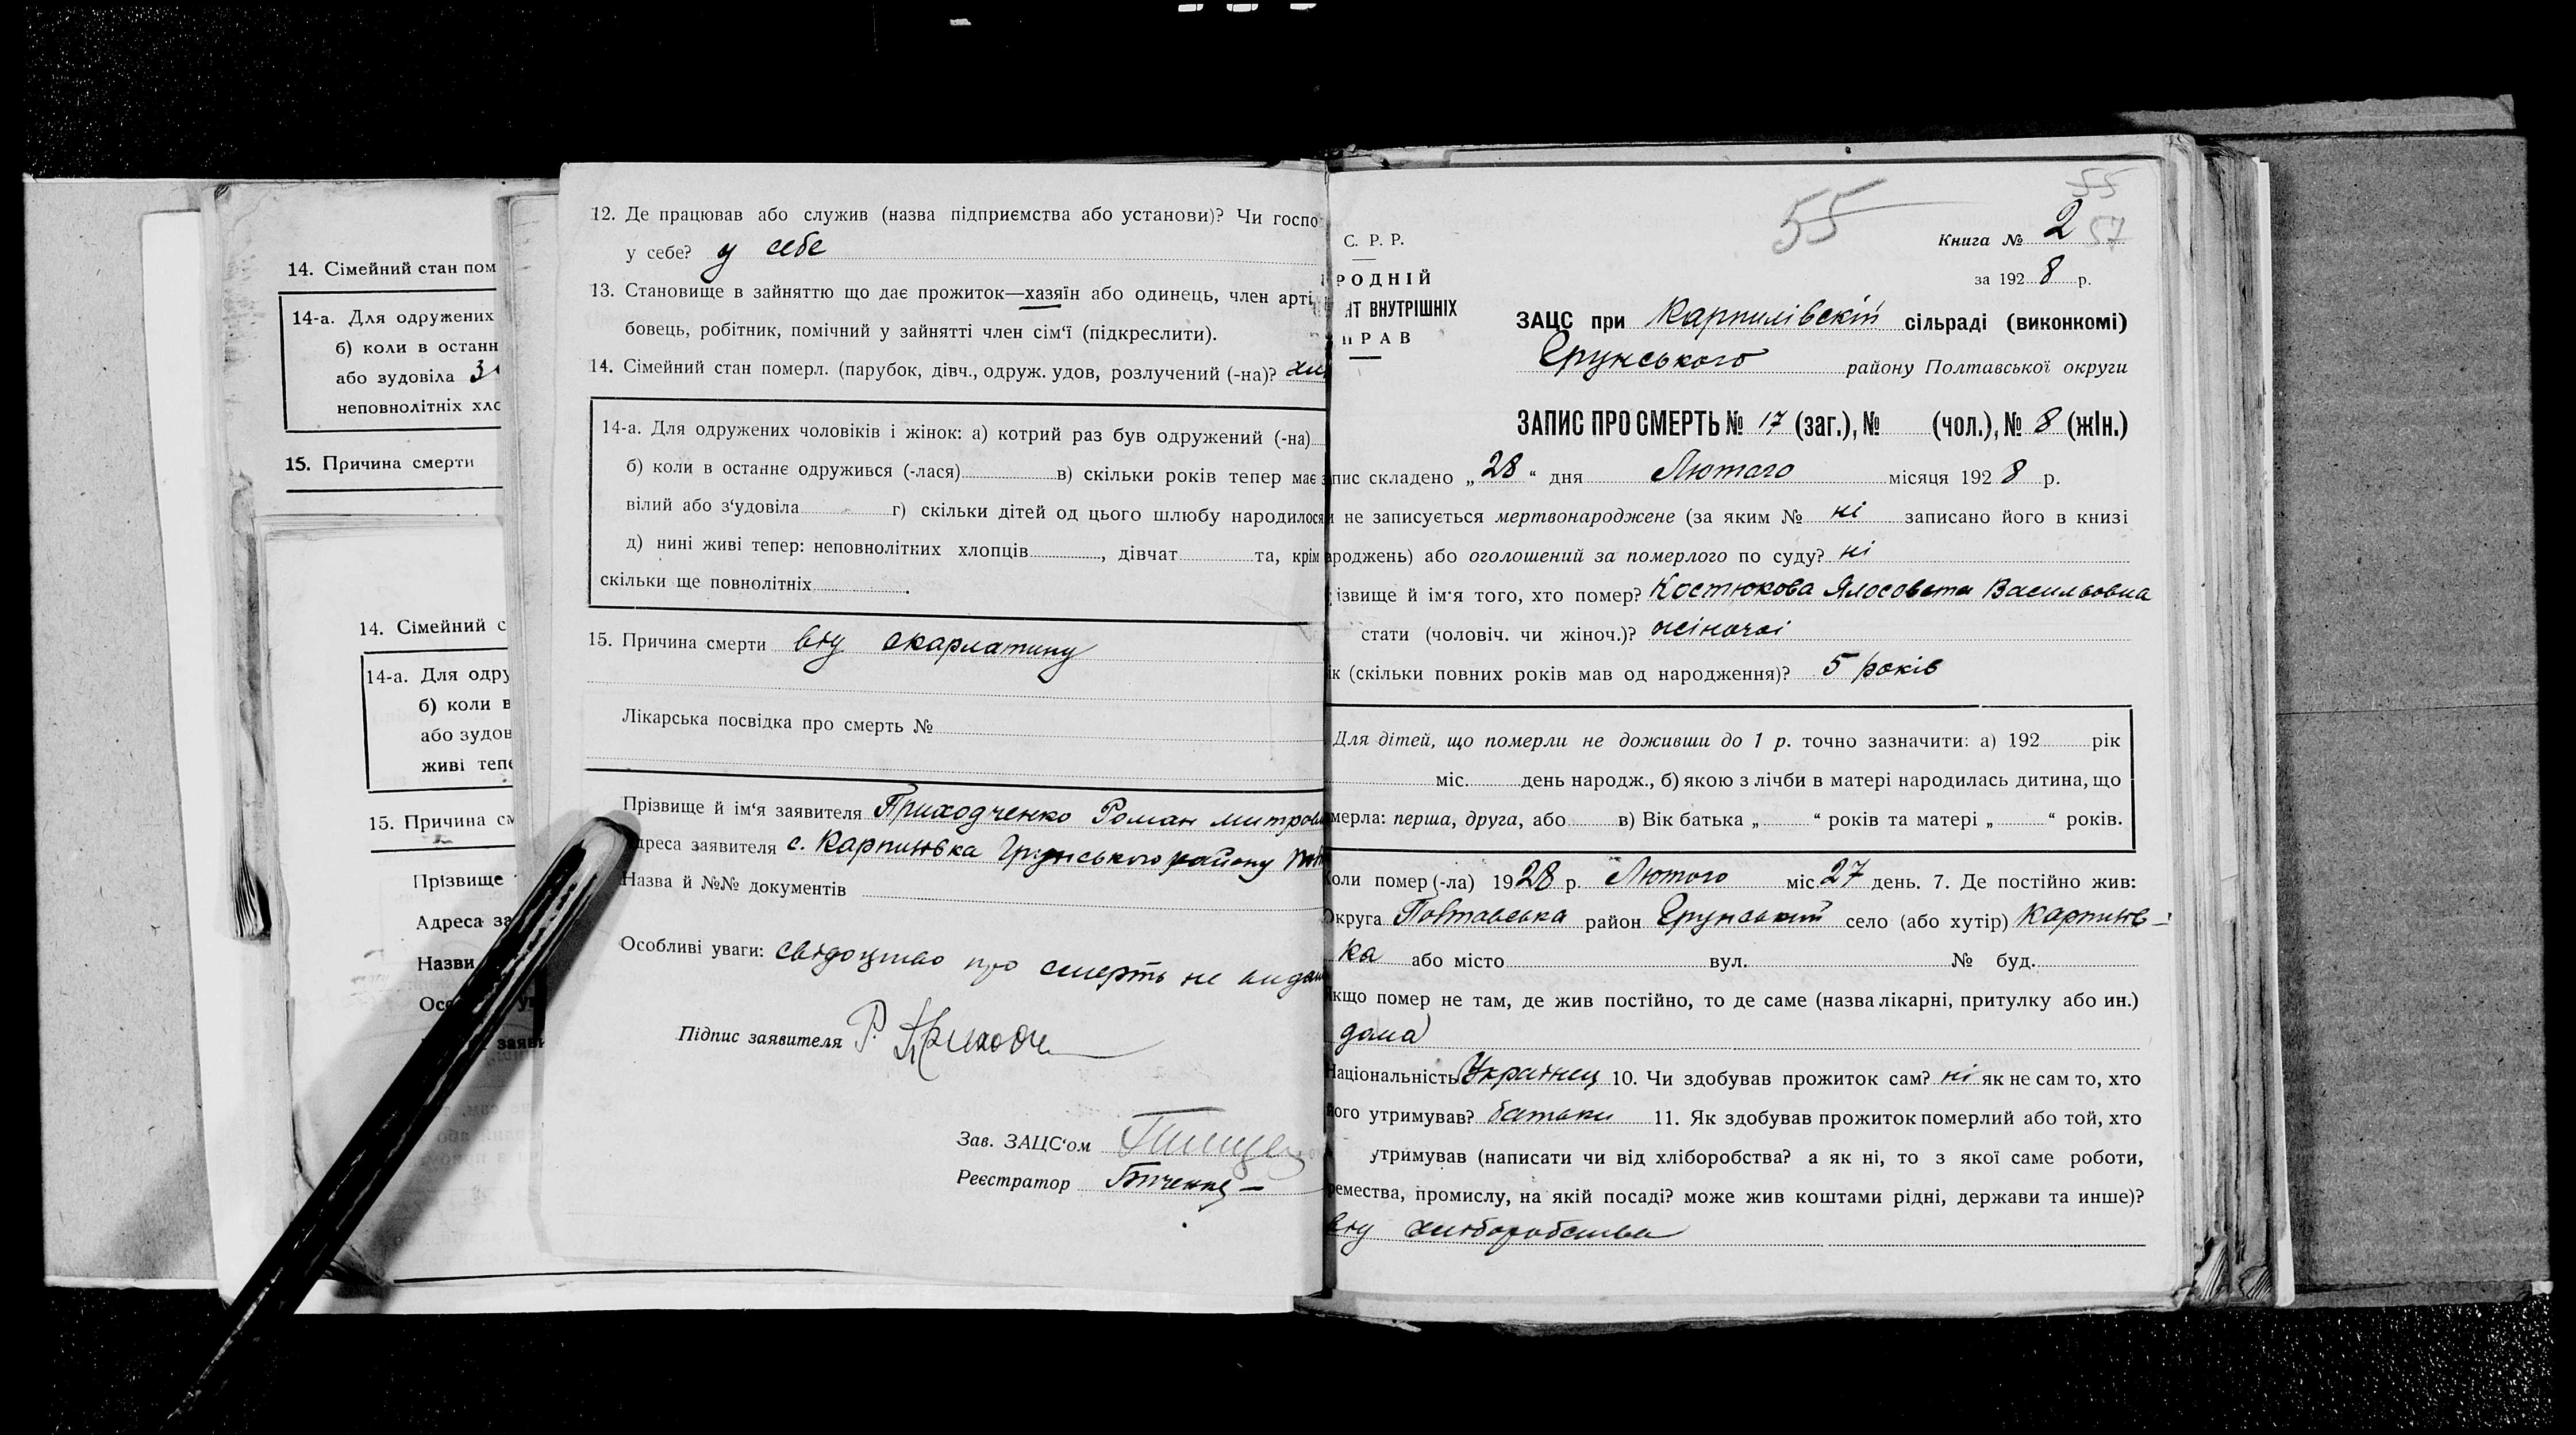 14. Сімейний стан пом
14-а. Для одружених
б) коли в останн
або зудовіла
неповнолітніх хло
15. Причина смерти
14. Сімейний с
14-а. Для одру
б) коли в
або зудов
живі тепе
15. Причина см
Прізвище
Адреса за
Назви
заяви
12. Де працював або служив (назва підприємства або установи)? Чи госпо
у себе? у себе
13. Становище в зайняттю що дає прожиток—хазяїн або одинець, член арті
бовець, робітник, помічний у зайнятті член сім'ї (підкреслити).
14. Сімейний стан померл. (парубок, дівч., одруж. удов, розлучений (-на)?
14-а. Для одружених чоловіків і жінок: а) котрий раз був одружений (-на)
б) коли в останнє одружився (-лася) в) скільки років тепер має
вілий або з'удовіла г) скільки дітей од цього шлюбу народилося
д) нині живі тепер: неповнолітних хлопців, дівчат та, крім
скільки ще повнолітніх.
15. Причина смерти від скарлатину
Лікарська посвідка про смерть №
Прізвище й ім'я заявителя Приходченко Роман Митроф
адреса заявителя с. Карпилівка Грунського району
Назва й №№ документів
Особливі уваги: свідоцтво про смерть не видан
Підпис заявителя Р. Приходч
Зав. ЗАЦС'ом
Реєстратор
55
55
57
С. Р. Р.
Книга № 2
РОДНІЙ
за 1928 р.
НТ ВНУТРІШНІХ
ПРАВ
ЗАЦС при Карпилівскій сільраді (виконкомі)
Грунського району Полтавської округи
ЗАПИС ПРО СМЕРТЬ № 17 (заг.), № (чол.), № 8 (жін.)
пис складено „28“ дня Лютого місяця 1928 р.
и не записується мертвонароджене (за яким № ні записано його в книзі
ароджень) або оголошений за померлого по суду? ні
ізвище й ім'я того, хто помер? Костюкова Ялосовета Васильовна
стати (чоловіч. чи жіноч.)? жіночої
ік (скільки повних років мав од народження)? 5 років
Для дітей, що померли не доживши до 1 р. точно зазначити: а) 192 рік
міс. день народж., б) якою з лічби в матері народилась дитина, що
мерла: перша, друга, або в) Вік батька „ “ років та матері „ “ років.
Коли помер (-ла) 1928 р. Лютого міс. 27 день. 7. Де постійно жив:
Округа Полтавська район Грунський село (або хутір) Карпилів-
ка або місто вул. № буд.
якщо помер не там, де жив постійно, то де саме (назва лікарні, притулку або ин.)
дома
Національність Українец 10. Чи здобував прожиток сам? ні як не сам то, хто
його утримував? батьки 11. Як здобував прожиток померлий або той, хто
утримував (написати чи від хліборобства? а як ні, то з якої саме роботи,
ремества, промислу, на якій посаді? може жив коштами рідні, держави та инше)?
від хліборобства